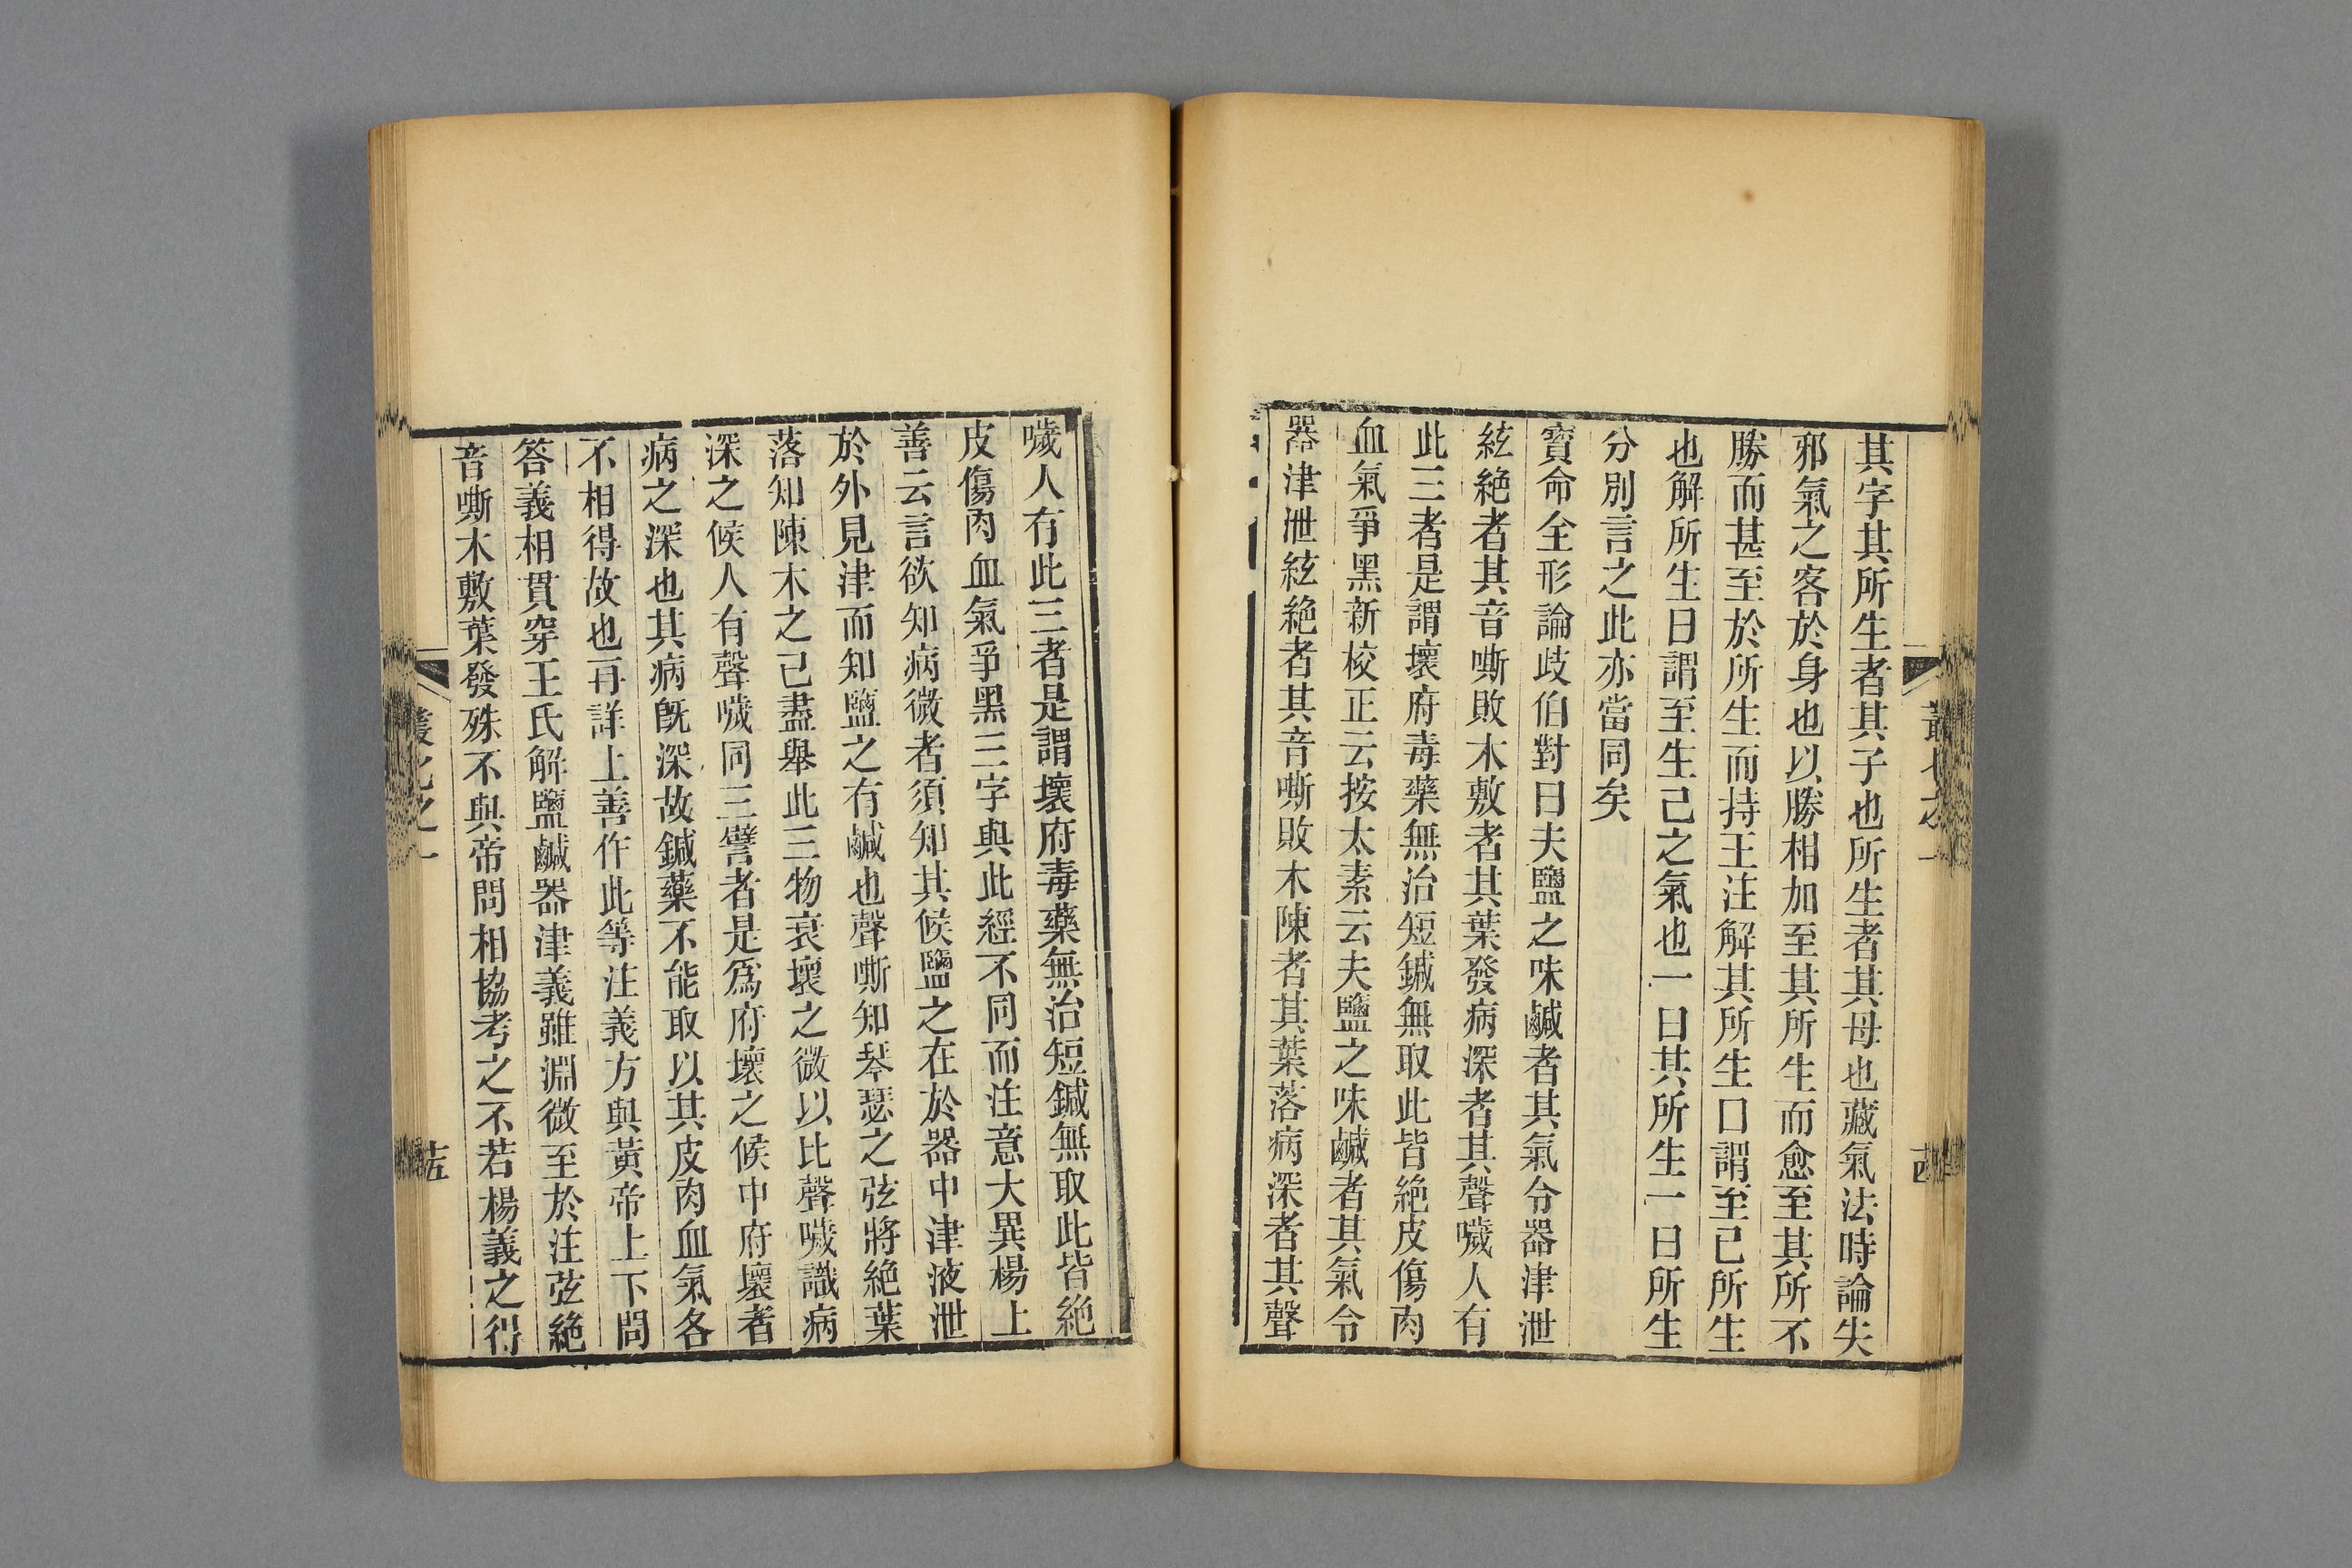 其字其所生者其子也所生者其母也藏氣法時論失
邪氣之客於身也以勝相加至其所生而愈至其所不
勝而甚至於所生而持王注解其所生曰謂至己所生
也解所生曰謂至生己之氣也一曰其所生一曰所生
分別言之此亦當同矣
寶命全形論歧伯對曰夫鹽之味鹹者其氣令器津泄
絃絕者其音嘶敗木敷者其葉發病深者其聲噦人有
此三者是謂壞府毒藥無治短鍼無取此皆絕皮傷肉
血氣爭黑新校正云按太素云夫鹽之味鹹者其氣令
器津泄絃絕者其音嘶敗木陳者其葉落病深者其聲
噦人有此三者是謂壞府毒藥無治短鍼無取此皆絕
皮傷肉血氣爭黑三字與此經不同而注意大異楊上
善云言欲知病微者須知其候鹽之在於器中津液泄
於外見津而知鹽之有鹹也聲嘶知琴瑟之弦將絕葉
落知陳木之已盡舉此三物衰壞之微以比聲噦識病
深之候人有聲噦同三譬者是爲府壞之候中府壞者
病之深也其病旣深故鍼藥不能取以其皮肉血氣各
不相得故也再詳上善作此等注義方與黃帝上下問
答義相貫穿王氏解鹽鹹器津義雖淵微至於注弦絕
音嘶木敷葉發殊不與帝問相協考之不若楊義之得